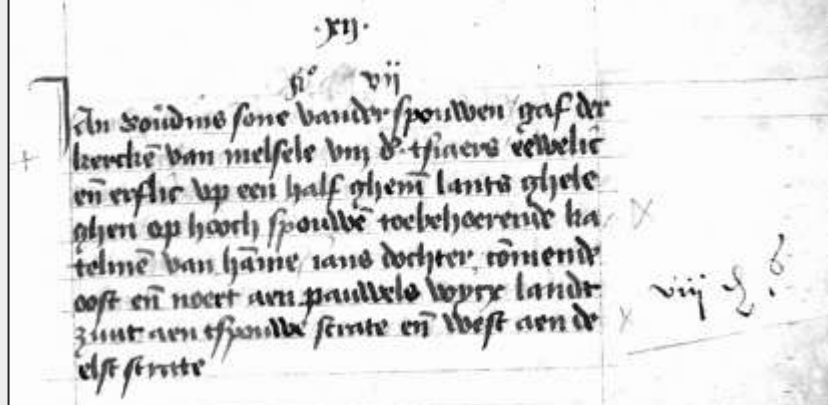 ·xij·
fº vij
Jan boudins sone vander spouwen gaf der
kerckē van melsele viij d' tsiaers eewelic
eñ erflic up een half ghem̄ lants ghele
ghen op hooch spouwē toebehoerende ka
telinē van hāme jans dochter, cōmende
oost eñ noert aen pauwels wyrx landt
zuut aen tspouwe strate eñ west aen de
elst strate
viij